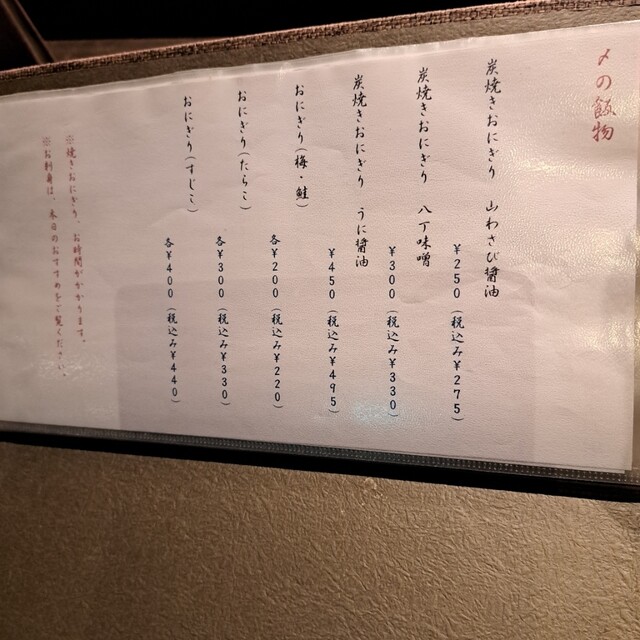 〆の飯物
炭焼きおにぎり 山わさび醤油
¥250（税込み¥275）
炭焼きおにぎり 八丁味噌
¥300（税込み¥330）
炭焼きおにぎり うに醤油
¥450（税込み¥495）
おにぎり（梅・鮭）
各¥200（税込み¥220）
おにぎり（たらこ）
各¥300（税込み¥330）
おにぎり（すじこ）
各¥400（税込み¥440）
※焼きおにぎり、お時間がかかります。
※お刺身は、本日のおすすめをご覧ください。